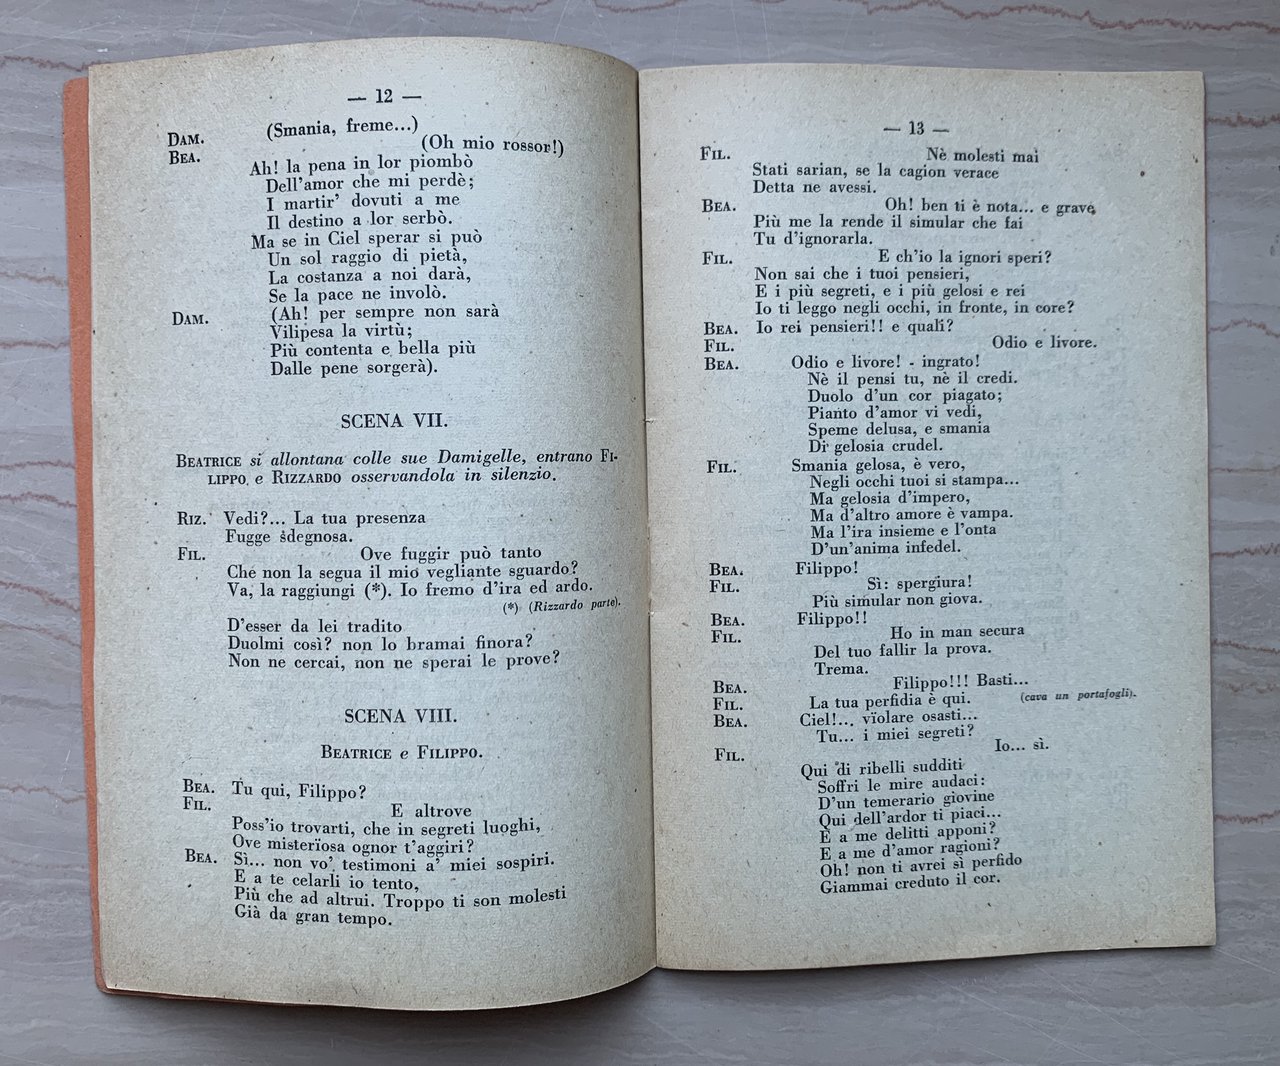 — 12 —
DAM. (Smania, freme...)
BEA. (Oh mio rossor!)
Ah! la pena in lor piombò
Dell'amor che mi perdè;
I martir' dovuti a me
Il destino a lor serbò.
Ma se in Ciel sperar si può
Un sol raggio di pietà,
La costanza a noi darà,
Se la pace ne involò.
DAM. (Ah! per sempre non sarà
Vilipesa la virtù;
Più contenta e bella più
Dalle pene sorgerà).
SCENA VII.
BEATRICE si allontana colle sue Damigelle, entrano FI-
LIPPO e RIZZARDO osservandola in silenzio.
RIZ. Vedi?... La tua presenza
Fugge sdegnosa.
FIL. Ove fuggir può tanto
Che non la segua il mio vegliante sguardo?
Va, la raggiungi (*). Io fremo d'ira ed ardo.
(*) (Rizzardo parte).
D'esser da lei tradito
Duolmi così? non lo bramai finora?
Non ne cercai, non ne sperai le prove?
SCENA VIII.
BEATRICE e FILIPPO.
BEA. Tu qui, Filippo?
FIL. E altrove
Poss'io trovarti, che in segreti luoghi,
Ove misterïosa ognor t'aggiri?
BEA. Sì... non vo' testimoni a' miei sospiri.
E a te celarli io tento,
Più che ad altrui. Troppo ti son molesti
Già da gran tempo.
— 13 —
FIL. Nè molesti mai
Stati sarian, se la cagion verace
Detta ne avessi.
BEA. Oh! ben ti è nota... e grave
Più me la rende il simular che fai
Tu d'ignorarla.
FIL. E ch'io la ignori speri?
Non sai che i tuoi pensieri,
E i più segreti, e i più gelosi e rei
Io ti leggo negli occhi, in fronte, in core?
BEA. Io rei pensieri!! e quali?
FIL. Odio e livore.
BEA. Odio e livore! - ingrato!
Nè il pensi tu, nè il credi.
Duolo d'un cor piagato;
Pianto d'amor vi vedi,
Speme delusa, e smania
Di gelosia crudel.
FIL. Smania gelosa, è vero,
Negli occhi tuoi si stampa...
Ma gelosia d'impero,
Ma d'altro amore è vampa.
Ma l'ira insieme e l'onta
D'un'anima infedel.
BEA. Filippo!
FIL. Sì: spergiura!
Più simular non giova.
BEA. Filippo!!
FIL. Ho in man secura
Del tuo fallir la prova.
Trema.
BEA. Filippo!!! Basti...
FIL. La tua perfidia è qui. (cava un portafogli).
BEA. Ciel!... vïolare osasti...
Tu... i miei segreti?
FIL. Io... sì.
Qui di ribelli sudditi
Soffri le mire audaci:
D'un temerario giovine
Qui dell'ardor ti piaci...
E a me delitti apponi?
E a me d'amor ragioni?
Oh! non ti avrei sì perfido
Giammai creduto il cor.